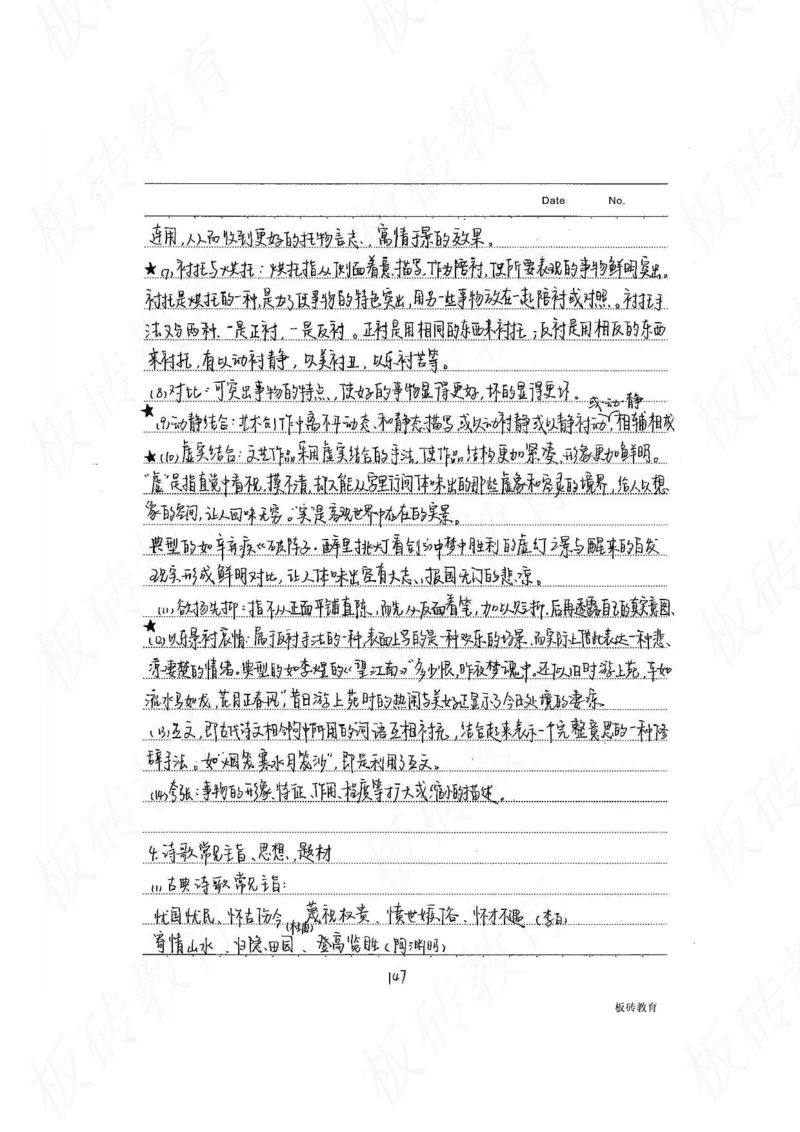 Date No.
连用,从而收到更好的托物言志、寓情于景的效果。
★(7)衬托与烘托:烘托指从侧面着意描写,作为陪衬,使所要表现的事物鲜明突出。
衬托是烘托的一种,是为了使事物的特色突出,用另一些事物放在一起陪衬或对照。衬托手
法又分两种,一是正衬,一是反衬。正衬是用相同的东西来衬托;反衬是用相反的东西
来衬托,有以动衬静,以美衬丑,以乐衬苦等。
(8)对比:可突出事物的特点,使好的事物显得更好,坏的显得更坏。
或一动一静
★(9)动静结合:艺术创作中离不开动态、和静态描写,或以动衬静或以静衬动,相辅相成
★(10)虚实结合:文艺作品采用虚实结合的手法,使作品结构更加紧凑,形象更加鲜明。
"虚"是指直觉中看视、摸不清,却又能从字里行间体味出的那些虚象和空灵的境界,给人以想
象的空间,让人回味无穷。"实"是客观世界中存在的实景。
典型的如辛弃疾《破阵子·醉里挑灯看剑》中梦中胜利的虚幻之景与醒来的白发
现实形成鲜明对比,让人体味出空有大志、报国无门的悲凉。
(11)欲扬先抑:指不从正面平铺直陈,而先从反面着笔,加以贬折,后再透露自己的真实意图、
★(12)以乐景衬哀情:属于反衬手法的一种,表面上写的是一种欢乐的场景,而实际上借此表达一种悲、
凉凄楚的情绪。典型的如李煜的《望江南》"多少恨,昨夜梦魂中。还似旧时游上苑,车如
流水马如龙,花月正春风",昔日游上苑时的热闹与美好正显示了今日处境的凄凉
(13)互文,即古代诗文相令句中所用的词语互相补充,结合起来表示一个完整意思的一种修
辞手法。如"烟笼寒水月笼沙",即是利用了互文。
(14)夸张:事物的形象、特征、作用、程度等扩大或缩小的描述。
4.诗歌常见主旨、思想、题材
(1)古典诗歌常见主旨:
忧国忧民、怀古伤今(杜甫) 蔑视权贵、愤世嫉俗、怀才不遇(李白)
寄情山水、归隐田园、登高览胜(陶渊明)
147
板砖教育